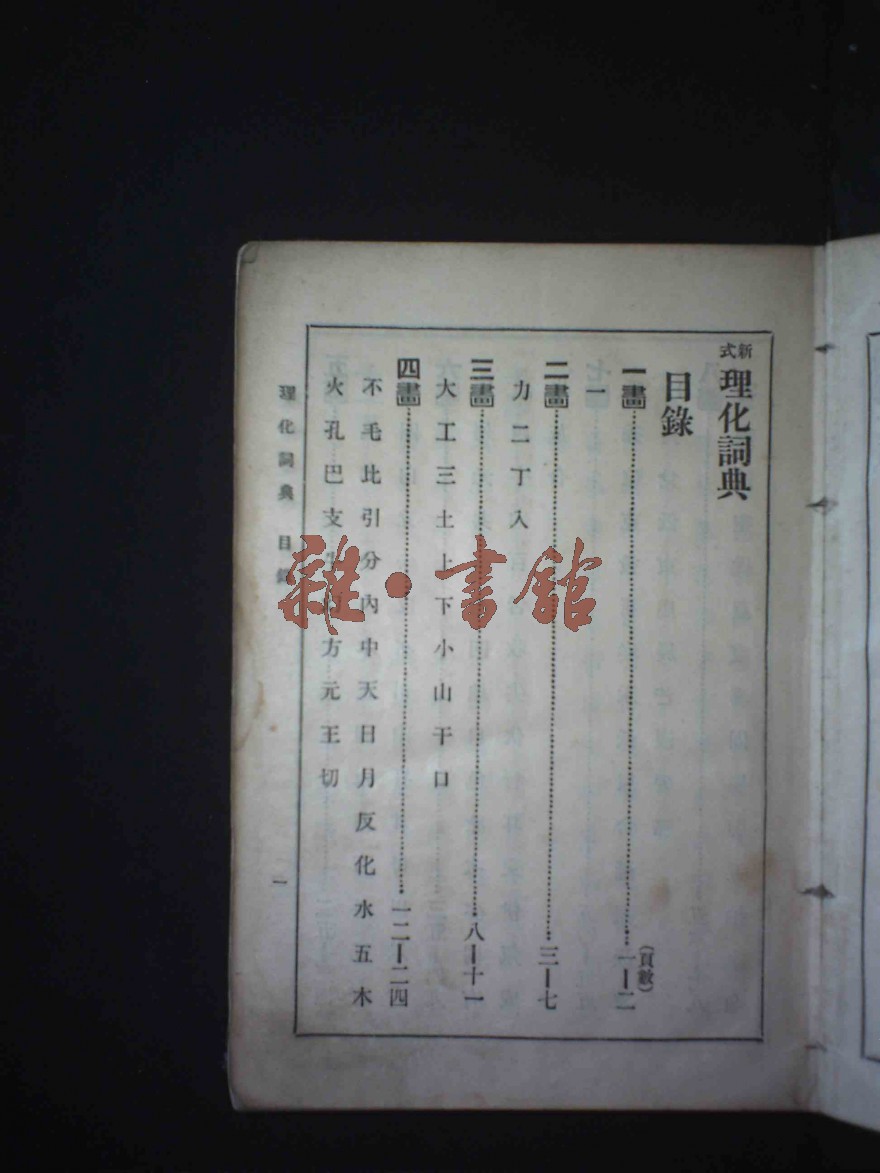 新式理化詞典
目錄
(頁數)
一畫……一—二
一
二畫……三—七
力二丁入
三畫……八—十一
大工三土上下小山干口
四畫……一二—二四
不毛比引分內中天日月反化水五木
火孔巴支方元王切
理化詞典 目錄
一
雜·書館